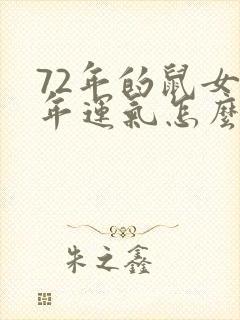 72年的鼠女
年运气怎麼
朱之鑫